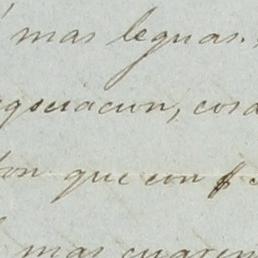 mas leguas.
egociacion, cosa
que con
mas cuaren